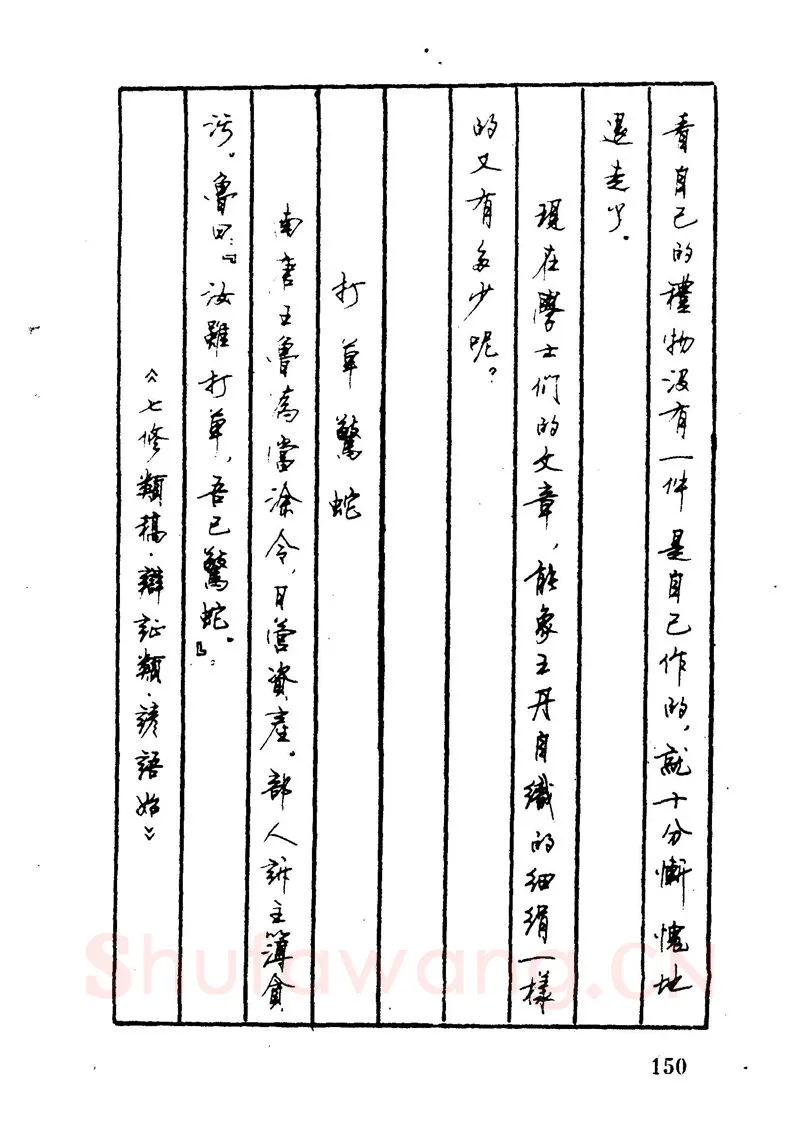 看自己的禮物没有一件是自己作的,就十分慚愧地
退走了.
現在學士們的文章,能象王丹自織的细绢一樣
的又有多少呢?
打草驚蛇
南唐王魯為當涂令,日營資產。部人訴主簿貪
污。魯曰:『汝雖打草,吾已驚蛇。』
《七修類稿·辯証類·諺語始》
Shufawang.CN
150